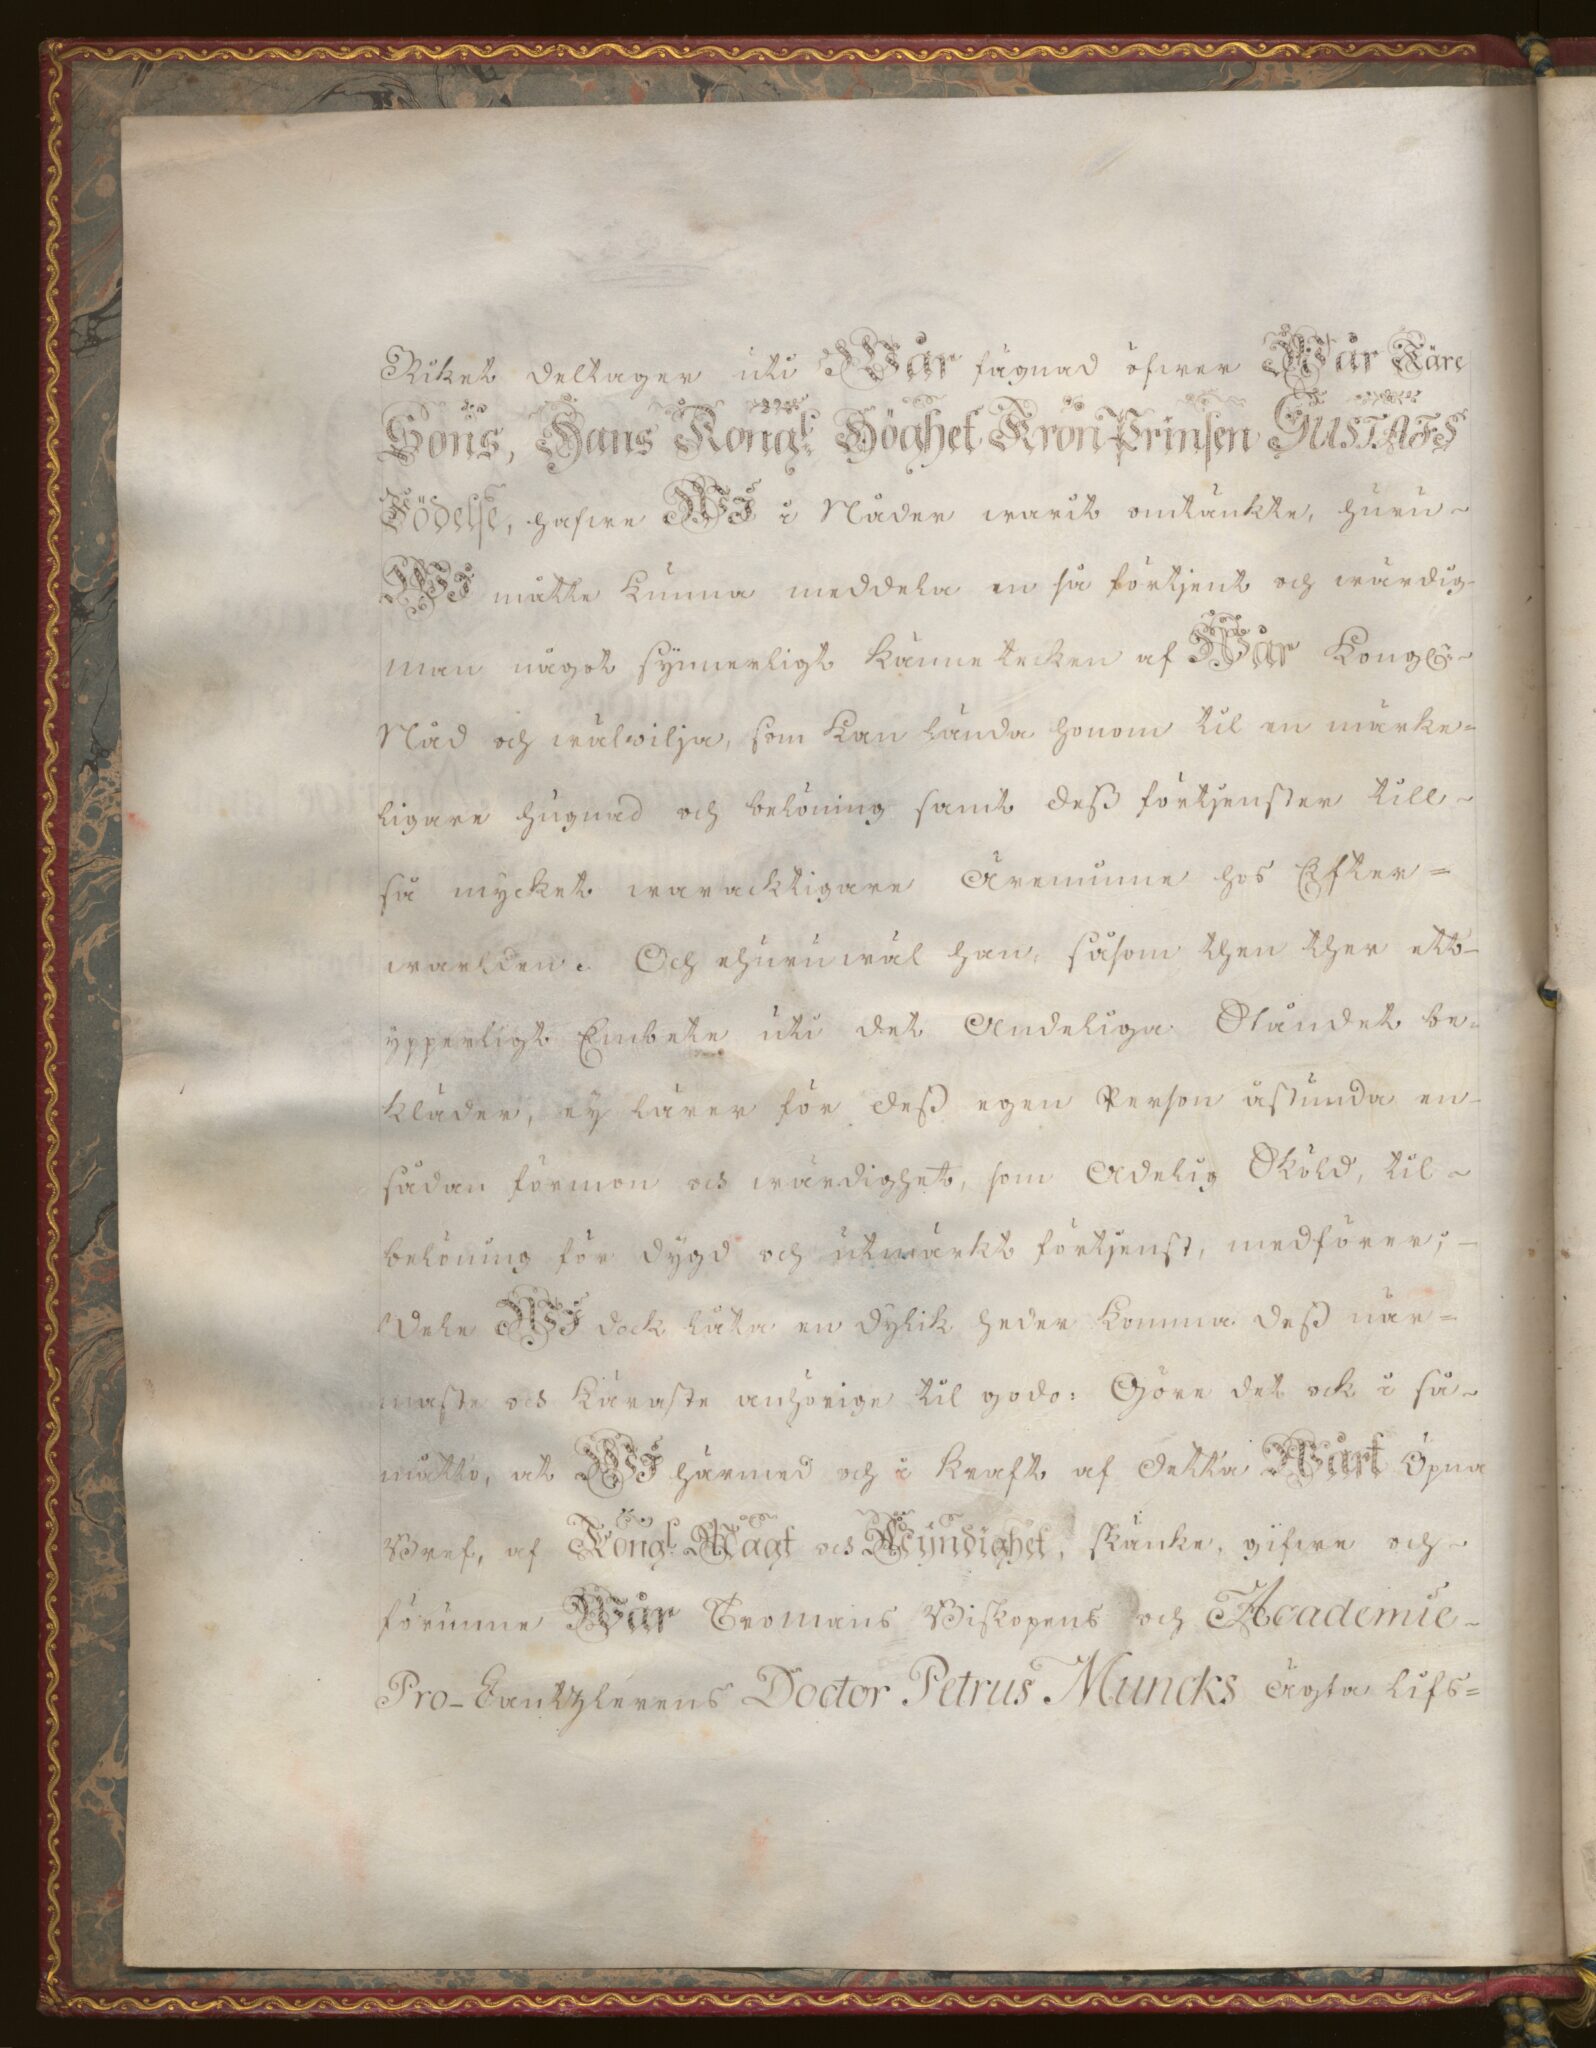 Riket deltager uti Wår fägnad öfwer Wår Käre
Sons, Hans Kongl. Höghet Kron-Prinsen GUSTAFS
Födelse, hafwe WI i Nåder warit omtänkte, huru
WI måtte kunna meddela en så förtjent och wärdig
man något synnerligt kännetecken af Wår Kongl.
Nåd och wälwilja, som kan lända honom til en märke=
ligare hugnad och belöning samt deß förtjenster till
så mycket waracktigare Äreminne hos Efter=
warlden. Och ehuruwäl han, såsom then ther ett
ypperligt Embete uti det Andeliga Ståndet be=
kläder, ey lärer för deß egen Person åstunda en
sådan förmon och wärdighet, som Adelig Sköld, til
belöning för dygd och utmärkt förtjenst, medförer;
Wele WI dock låta en dylik heder komma deß när=
maste och käraste anhörige til godo: Göre det ock i så
måtto, at WI härmed och i kraft af detta Wårt Öpna
Bref, af Kongl. Magt och Myndighet, skänke, gifwe och
förunne Wår Tromans Biskopens och Academie-
Pro-Cantzlerens Doctor Petrus Muncks Ägta Lifs=